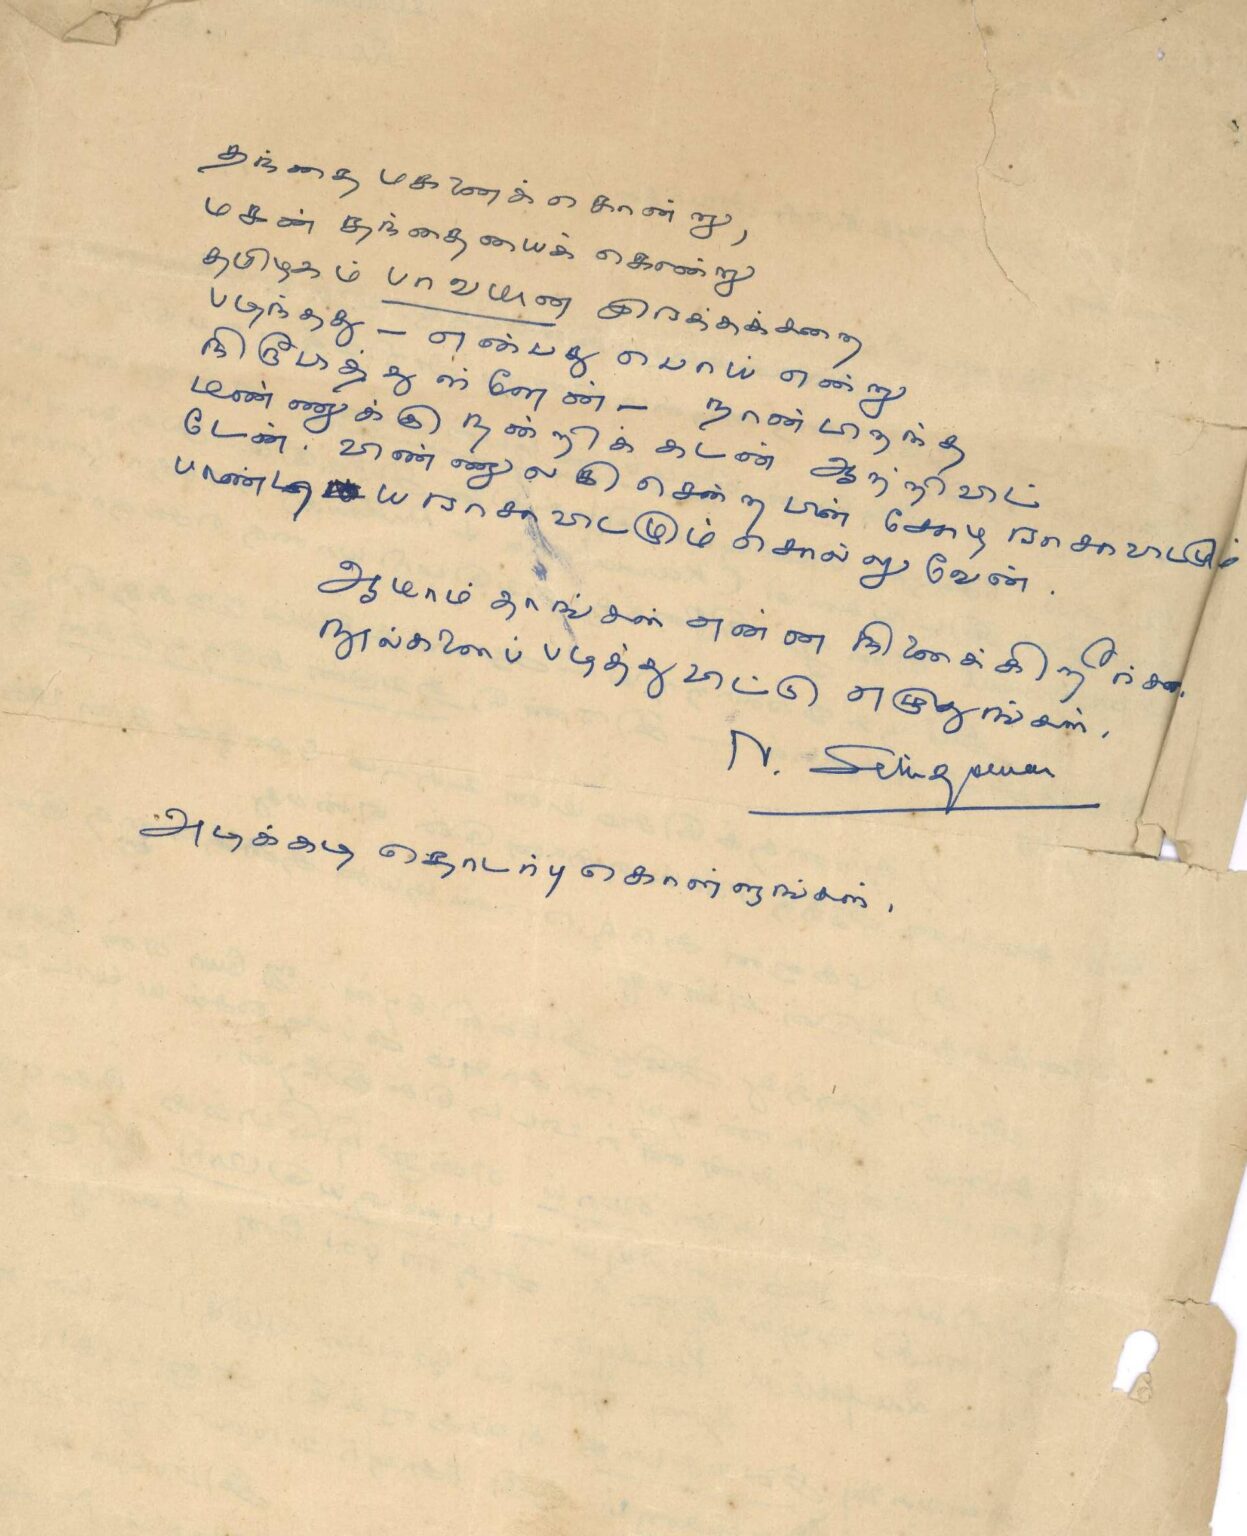 தந்தை மகனைக் கொன்று,
மகன் தந்தையைக் கொன்று
தமிழகம் பாவமான இரத்தக்கறை
படிந்தது — என்பது பொய் என்று
நிரூபித்துள்ளேன் — நான் பிறந்த
மண்ணுக்கு நன்றிக் கடன் ஆற்றிவிட்
டேன். விண்ணுலகு சென்றபின் சோழ ராசாவிடமும்
பாண்டிய ராசாவிடமும் சொல்லுவேன்.
ஆமாம் தாங்கள் என்ன நினைக்கிறீர்கள்.
நூல்களைப் படித்துவிட்டு எழுதுங்கள்.
N.
அடிக்கடி தொடர்பு கொள்ளுங்கள்.